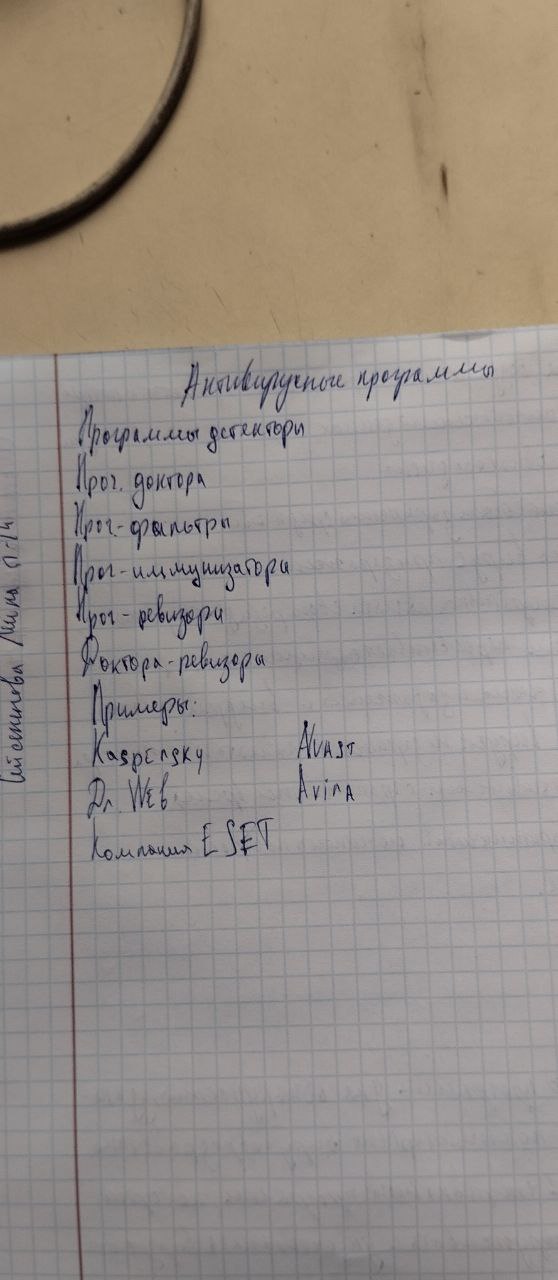 Антивирусные программы
Программы детекторы
Прог. доктора
Прог-фильтры
Прог-иммунизаторы
Прог-ревизоры
Доктора-ревизоры
Примеры:
Kaspersky Avast
Dr. Web Avira
Компания ESET